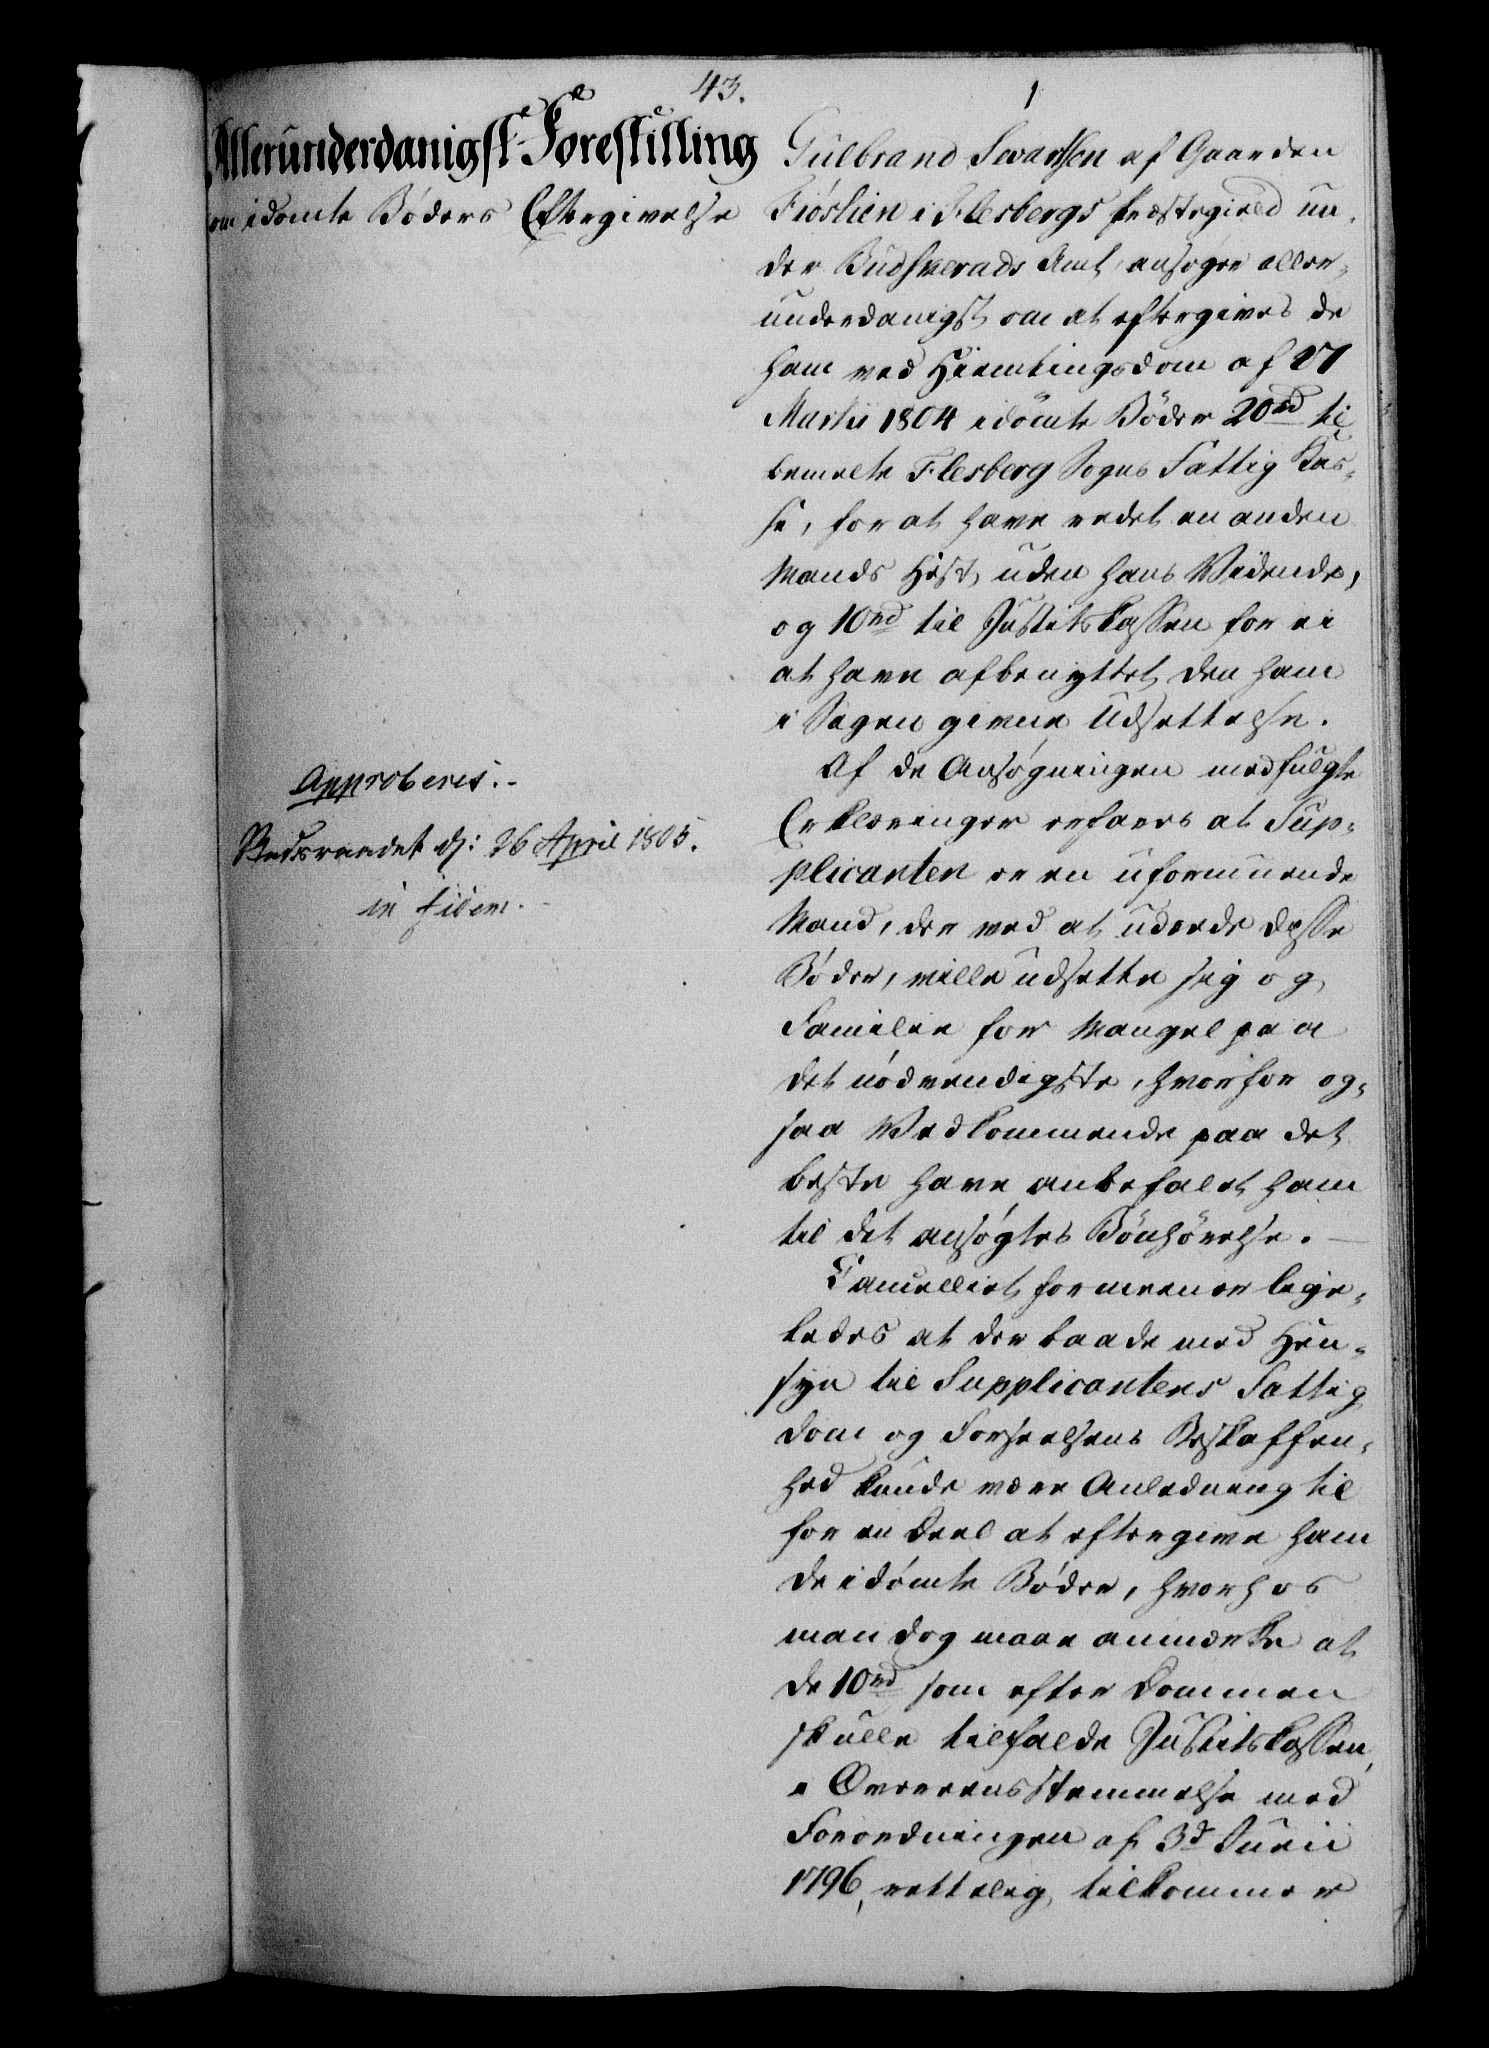 43.
1
Allerunderdanigst Forestilling
om idömte Böders Eftergivelse
Approberes.-
Statsraadet d: 26 April 1805.
in fidem.
Gulbrand Svartsen af Gaarden
Fiöslien i Flesbergs Præstegield un-
der Budskeruds Amt, ansöger aller-
underdanigst om at eftergives de
ham ved Hiemtingsdom af 17
Martii 1804 idömte Böder 20 rd til
bemelte Flesberg Sogns Fattig Kas-
se, for at have redet en anden
Mands Hest, uden hans Vidende,
og 10 rd til Justitskassen for ei
at have afbenyttet den ham
i Sagen givne Udsettelse.
Af de Ansögningen medfulgte
Erklæringer erfares at Sup-
plicanten er en uformuende
Mand, der ved at udrede disse
Böder, ville udsette sig og
Familie for Mangel paa
det nödvendigste, hvorfor og-
saa Vedkommende paa det
beste have anbefalet ham
til det ansögtes Bönhörelse.
Cancelliet formener lige-
ledes at der baade med Hen-
syn til Supplicantens Fattig
dom og Forseelsens Beskaffen-
hed kunde være Anledning til
for en Deel at eftergive ham
de idömte Böder, hvorhos
man dog maae anmærke at
de 10 rd som efter Dommen
skulle tilfalde Justitskassen,
i Overeensstemmelse med
Forordningen af 3d Junii
1796, rettelig tilkommer